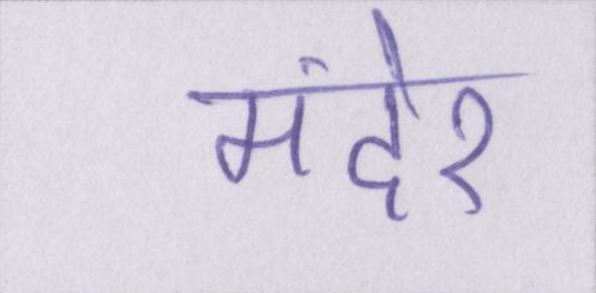 मंदेर